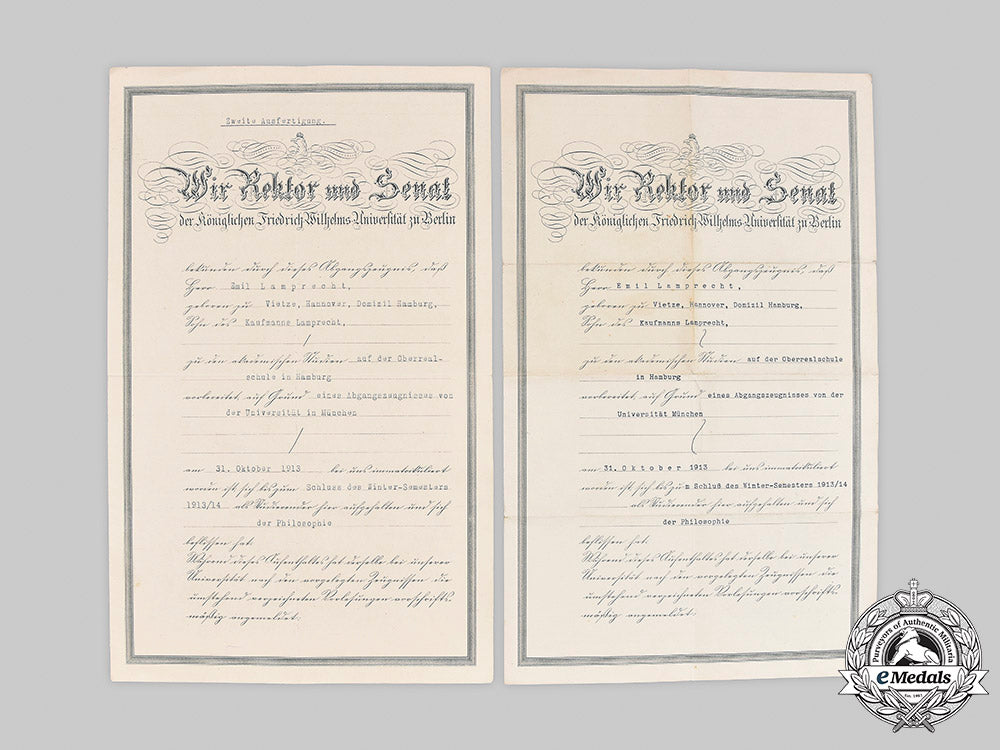 Zweite Ausfertigung.
Wir Rektor und Senat
der Königlichen Friedrich-Wilhelms-Universität zu Berlin
bekunden durch dieses Abgangszeugnis, daß
Herr Emil Lamprecht,
geboren zu Vietze, Hannover, Domizil Hamburg,
Sohn des Kaufmanns Lamprecht,
zu den akademischen Studien auf der Oberreal-
schule in Hamburg
vorbereitet, auf Grund eines Abgangszeugnisses von
der Universität in München
am 31. Oktober 1913 bei uns immatrikuliert
worden ist, sich bis zum Schluss des Winter-Semesters
1913/14 als Studierender hier aufgehalten und sich
der Philosophie
beflissen hat.
Während dieses Aufenthaltes hat derselbe bei unserer
Universität nach den vorgelegten Zeugnissen die
umstehend verzeichneten Vorlesungen vorschrifts-
mäßig angemeldet.
Wir Rektor und Senat
der Königlichen Friedrich-Wilhelms-Universität zu Berlin
bekunden durch dieses Abgangszeugnis, daß
Herr Emil Lamprecht,
geboren zu Vietze, Hannover, Domizil Hamburg,
Sohn des Kaufmanns Lamprecht,
zu den akademischen Studien auf der Oberrealschule
in Hamburg
vorbereitet, auf Grund eines Abgangszeugnisses von der
Universität München
am 31. Oktober 1913 bei uns immatrikuliert
worden ist, sich bis zum Schluß des Winter-Semesters 1913/14
als Studierender hier aufgehalten und sich
der Philosophie
beflissen hat.
Während dieses Aufenthaltes hat derselbe bei unserer
Universität nach den vorgelegten Zeugnissen die
umstehend verzeichneten Vorlesungen vorschrifts-
mäßig angemeldet.
Purveyors of Authentic Militaria
eMedals